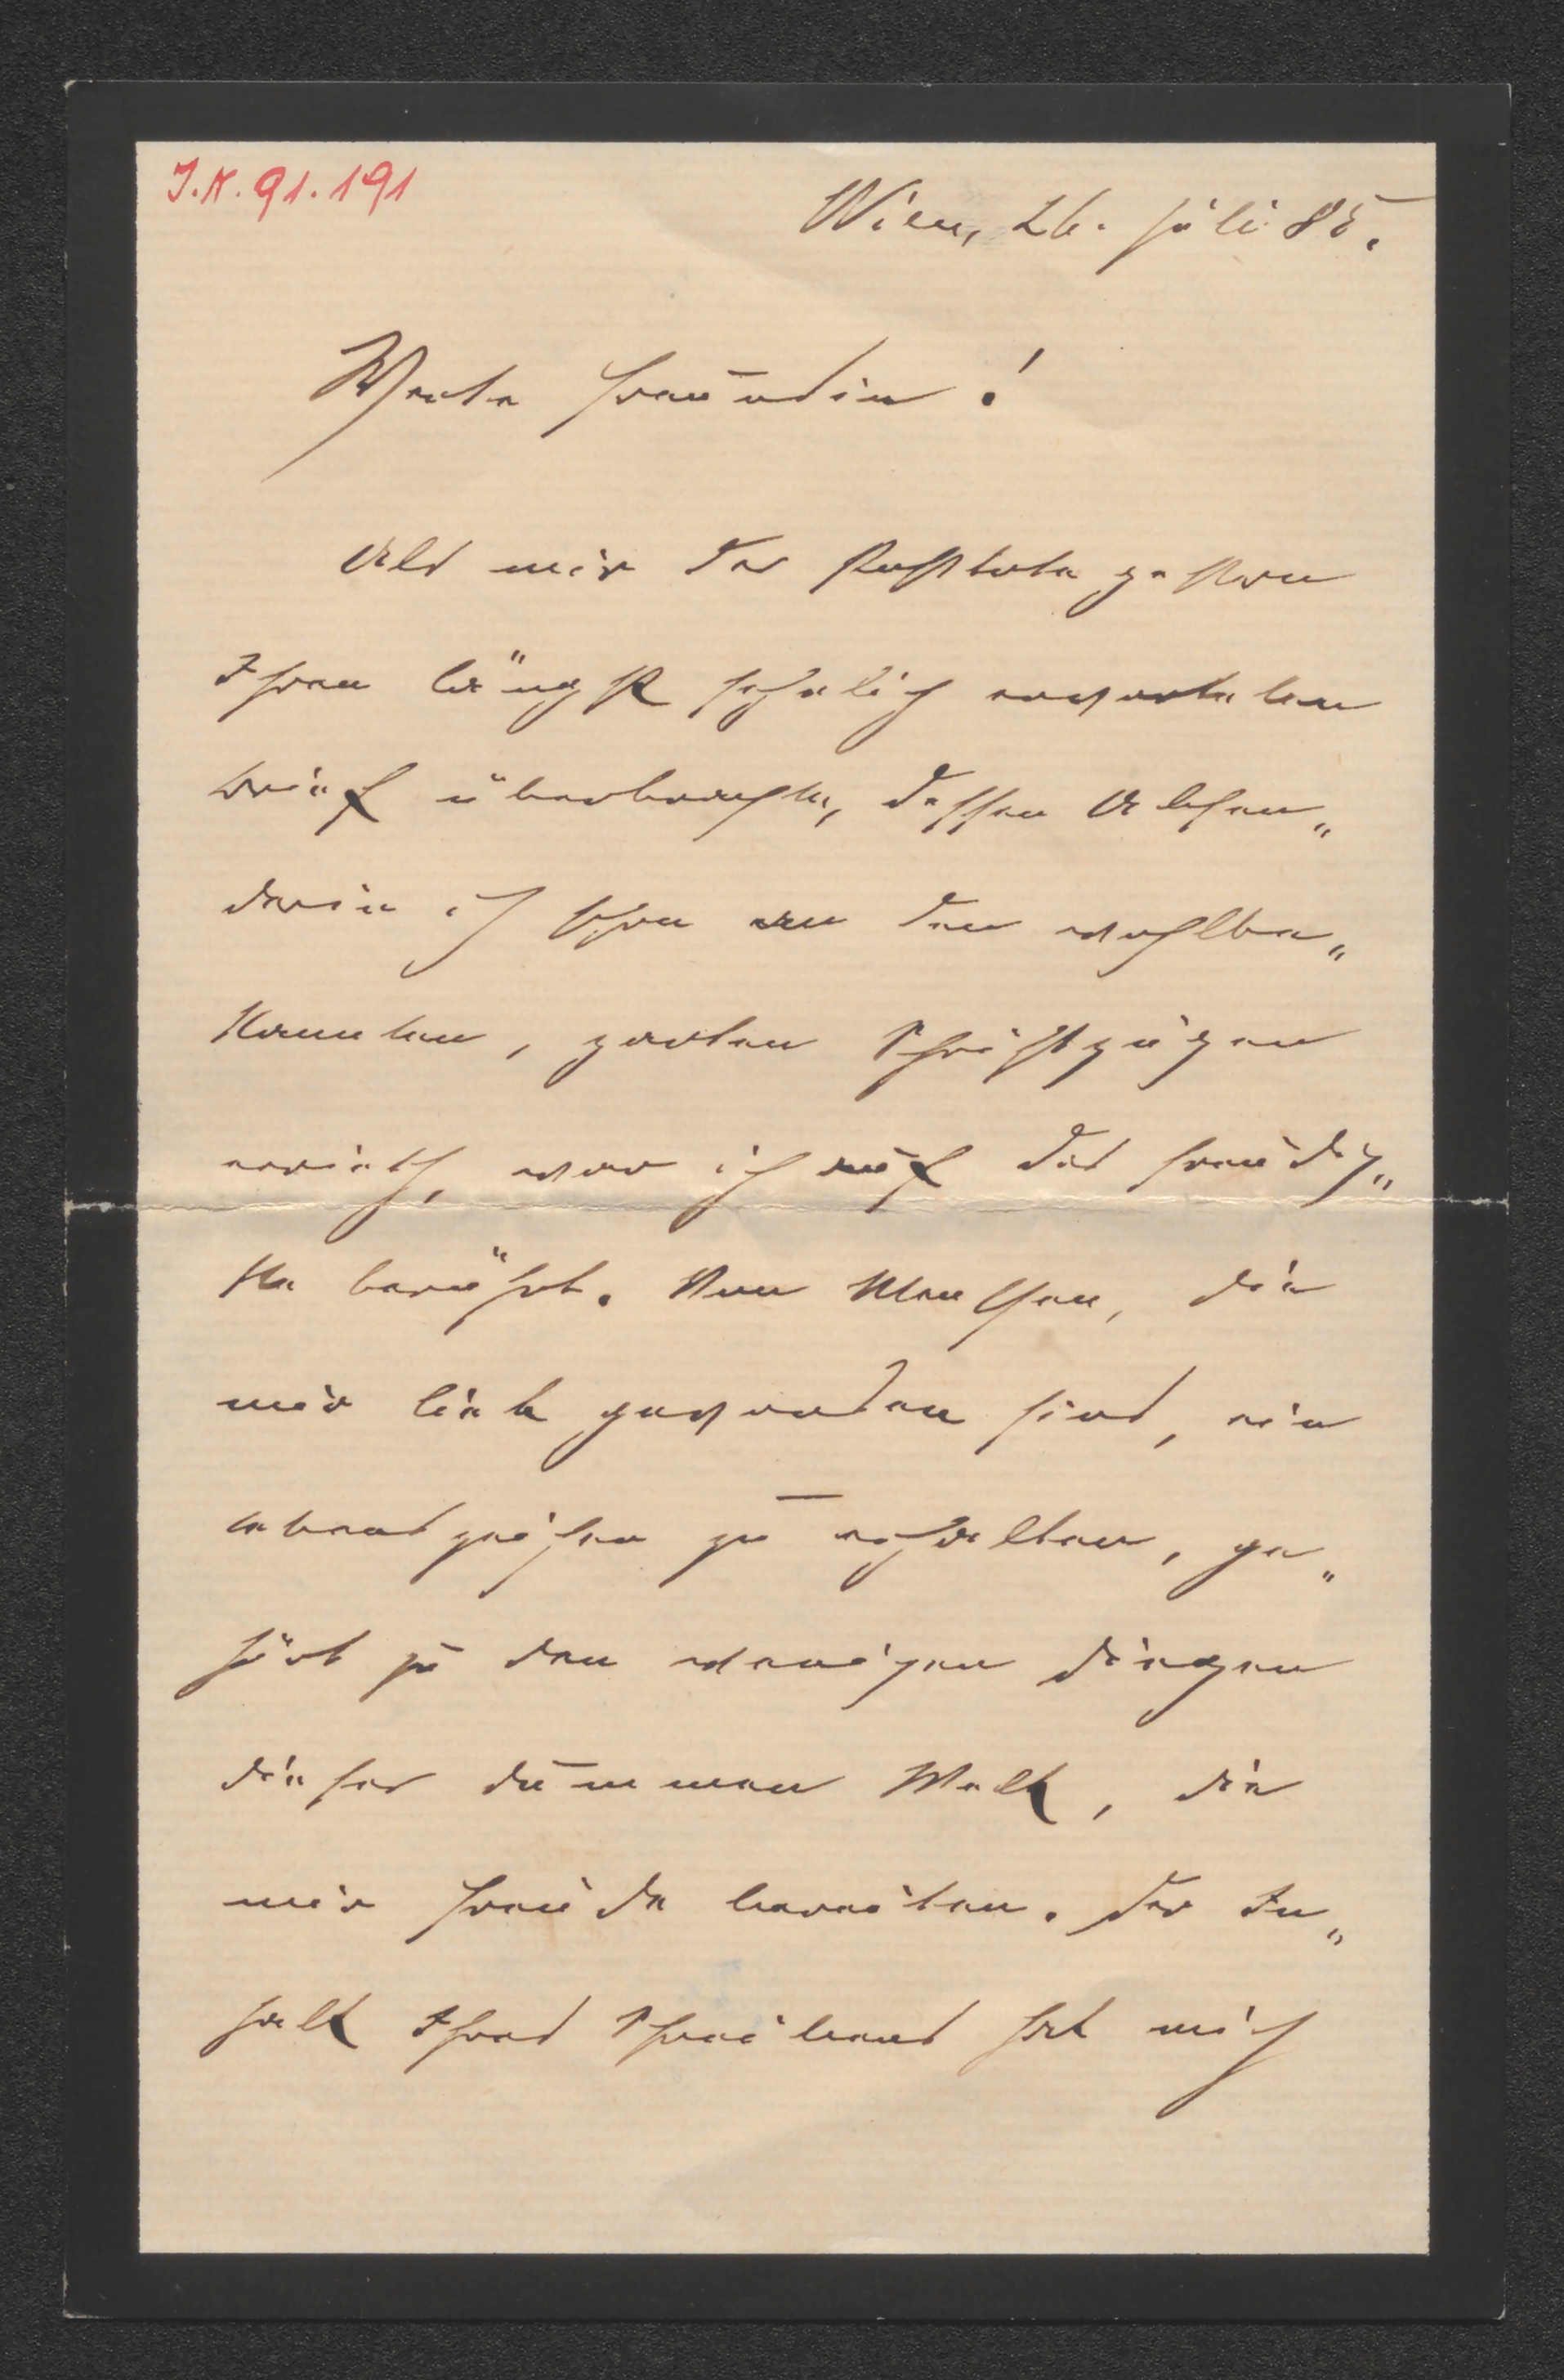 J.N. 91.191
Wien, 26. Juli 85.
Werte Freundin!
Als mir der Postbote gestern
Ihren längst sehnlich erwarteten
Brief überbrachte, dessen Absen„
derin ich schon an den wohlbe„
kannten, zarten Schriftzügen
errieth, war ich auf das freudig„
ste berührt. Von Menschen, die
mir lieb geworden sind, ein
Lebenszeichen zu erhalten, ge„
hört zu den wenigen Dingen
dieser dummen Welt, die
mir Freude bereiten. Der In„
halt Ihres Schreibens hat mich